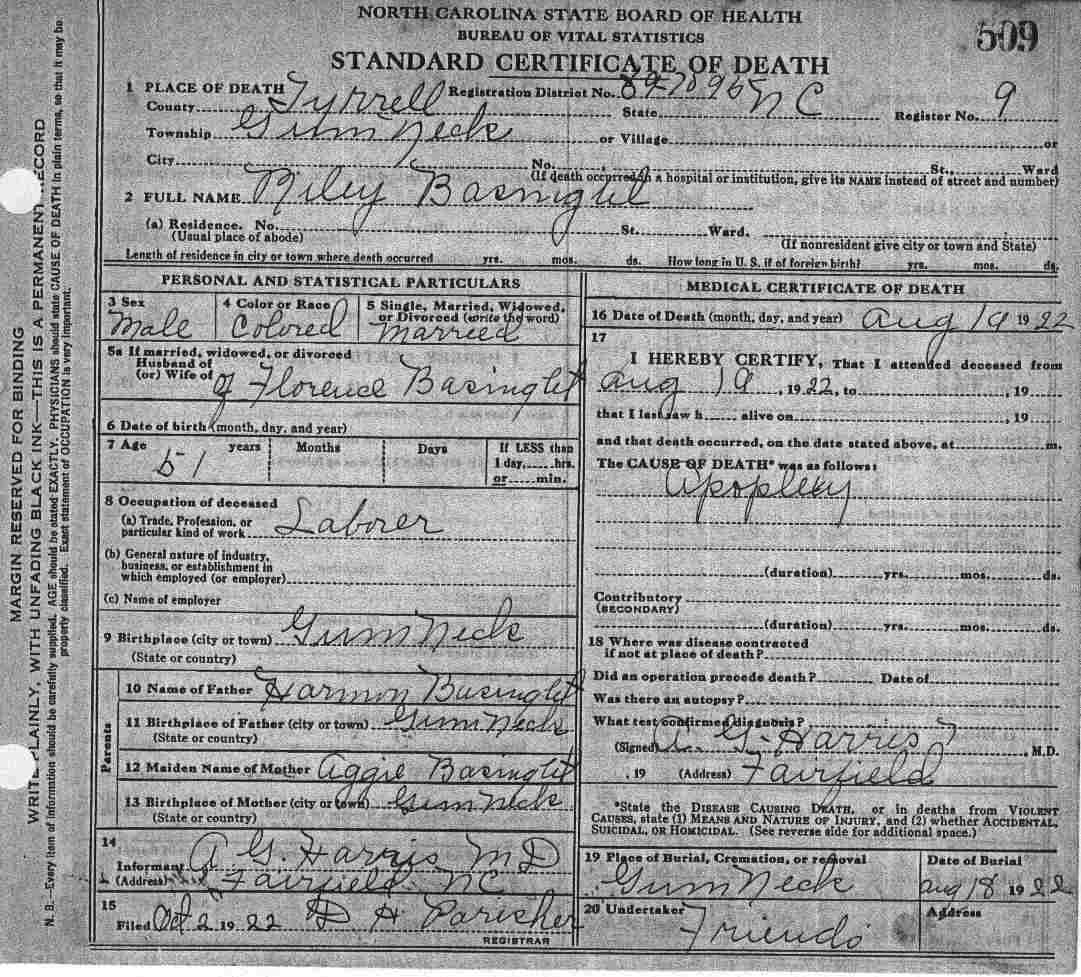 NORTH CAROLINA STATE BOARD OF HEALTH
BUREAU OF VITAL STATISTICS
509
STANDARD CERTIFICATE OF DEATH
1 PLACE OF DEATH Registration District No. 89-7095
County Tyrrell State NC Register No. 9
Township Gum Neck or Village or
City No. St., Ward
(If death occurred in a hospital or institution, give its NAME instead of street and number)
2 FULL NAME Riley Basnight
(a) Residence. No. St. Ward.
(Usual place of abode) (If nonresident give city or town and State)
Length of residence in city or town where death occurred yrs. mos. ds. How long in U. S. if of foreign birth? yrs. mos. ds.
PERSONAL AND STATISTICAL PARTICULARS
3 Sex 4 Color or Race 5 Single, Married, Widowed, or Divorced (write the word)
Male Colored Married
5a If married, widowed, or divorced
Husband of
(or) Wife of of Florence Basinght
6 Date of birth (month, day, and year)
7 Age years Months Days If LESS than
51 1 day, hrs.
or min.
8 Occupation of deceased
(a) Trade, Profession, or
particular kind of work Laborer
(b) General nature of industry,
business, or establishment in
which employed (or employer)
(c) Name of employer
9 Birthplace (city or town) Gum Neck
(State or country)
Parents
10 Name of Father Harmon Basinght
11 Birthplace of Father (city or town) Gum Neck
(State or country)
12 Maiden Name of Mother Aggie Basinght
13 Birthplace of Mother (city or town) Gum Neck
(State or country)
14
Informant A G. Harris MD
(Address) Fairfield NC
15
Filed Oct 2 1922 D H Parisher
REGISTRAR
MEDICAL CERTIFICATE OF DEATH
16 Date of Death (month, day, and year) Aug 19 1922
17
I HEREBY CERTIFY, That I attended deceased from
Aug 19, 1922, to , 19
that I last saw h alive on , 19
and that death occurred, on the date stated above, at m.
The CAUSE OF DEATH* was as follows:
Apoplexy
(duration) yrs. mos. ds.
Contributory
(SECONDARY)
(duration) yrs. mos. ds.
18 Where was disease contracted
if not at place of death?
Did an operation precede death? Date of
Was there an autopsy?
What test confirmed diagnosis?
(Signed) A. G. Harris, M.D.
, 19 (Address) Fairfield
*State the DISEASE CAUSING DEATH, or in deaths from VIOLENT
CAUSES, state (1) MEANS AND NATURE OF INJURY, and (2) whether ACCIDENTAL,
SUICIDAL, OR HOMICIDAL. (See reverse side for additional space.)
19 Place of Burial, Cremation, or removal Date of Burial
Gum Neck Aug 18 1922
20 Undertaker Address
Friends
MARGIN RESERVED FOR BINDING
WRITE PLAINLY, WITH UNFADING BLACK INK—THIS IS A PERMANENT RECORD
N. B.—Every item of information should be carefully supplied. AGE should be stated EXACTLY. PHYSICIANS should state CAUSE OF DEATH in plain terms, so that it may be
properly classified. Exact statement of OCCUPATION is very important.